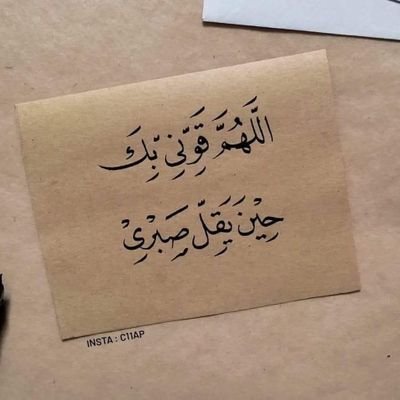 اللَّهُمَّ قَوِّنِي بِكَ
حِيْنَ يَقِلّ صِبْرِيْ
INSTA : C11AP